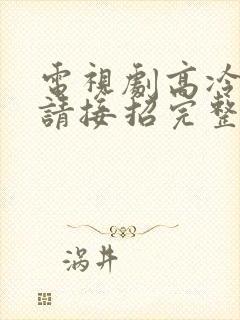 電視劇高冷
請接招完整
涡井